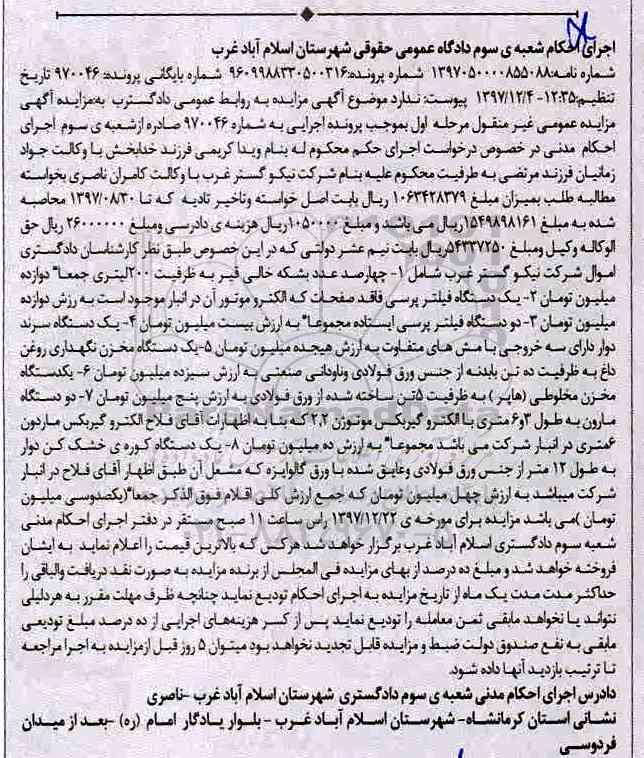 اجرای احکام شعبه ی سوم دادگاه عمومی حقوقی شهرستان اسلام آباد غرب
شماره نامه:۱۳۹۷۰۵۰۰۰۰۸۵۵۰۸۸ شماره پرونده:۹۶۰۹۹۸۸۳۳۰۵۰۰۳۱۶ شماره بایگانی پرونده: ۹۷۰۰۴۶ تاریخ
تنظیم:۱۲:۳۵- ۱۳۹۷/۱۲/۴ پیوست: ندارد موضوع آگهی مزایده به روابط عمومی دادگسترب به:مزایده آگهی
مزایده عمومی غیر منقول مرحله اول بموجب پرونده اجرایی به شماره ۹۷۰۰۴۶ صادره از شعبه ی سوم اجرای
احکام مدنی در خصوص درخواست اجرای حکم محکوم له بنام ویدا کریمی فرزند خدابخش با وکالت جواد
زمانیان فرزند مرتضی به طرفیت محکوم علیه بنام شرکت نیکو گستر غرب با وکالت کامران ناصری بخواسته
مطالبه طلب بمیزان مبلغ ۱۰۶۳۴۲۸۳۷۹ ریال بابت اصل خواسته وتاخیر تادیه که تا ۱۳۹۷/۰۸/۳۰ محاصبه
شده به مبلغ ۱۵۴۹۸۹۸۱۶۱ریال می باشد و مبلغ ۱۰۵۰۰۰۰ریال هزینه ی دادرسی ومبلغ ۲۶۰۰۰۰۰۰ ریال حق
الوکاله وکیل ومبلغ ۵۴۳۳۷۲۵۰ریال بابت نیم عشر دولتی که در این خصوص طبق نظر کارشناسان دادگستری
اموال شرکت نیکو گستر غرب شامل ۱- چهارصد عدد بشکه خالی قیر به ظرفیت ۲۰۰لیتری جمعا" دوازده
میلیون تومان ۲- یک دستگاه فیلتر پرسی فاقد صفحات که الکترو موتور آن در انبار موجود است به رزش دوازده
میلیون تومان ۳- دو دستگاه فیلتر پرسی ایستاده مجموعا" به ارزش بیست میلیون تومان ۴- یک دستگاه سرند
دوار دارای سه خروجی با مش های متفاوت به ارزش هیجده میلیون تومان ۵-یک دستگاه مخزن نگهداری روغن
داغ به ظرفیت ده تن بابدنه از جنس ورق فولادی وناودانی صنعتی به ارزش سیزده میلیون تومان ۶- یکدستگاه
مخزن مخلوطی (هاپر ) به ظرفیت ۵تن ساخته شده از ورق فولادی به ارزش پنج میلیون تومان ۷- دو دستگاه
مارون به طول ۳و۶ متری با الکترو گیربکس موتوزن ۲,۲ که بنا به اظهارات آقای فلاح الکترو گیربکس ماردون
۶متری در انبار شرکت می باشد مجموعا" به ارزش ده میلیون تومان ۸- یک دستگاه کوره ی خشک کن دوار
به طول ۱۲ متر از جنس ورق فولادی وعایق شده با ورق گالوایزه که مشعل آن طبق اظهار آقای فلاح در انبار
شرکت میباشد به ارزش چهل میلیون تومان که جمع ارزش کلی اقلام فوق الذکر جمعا"(یکصدوسی میلیون
تومان )می باشد مزایده برای مورخه ی ۱۳۹۷/۱۲/۲۲ راس ساعت ۱۱ صبح مستقر در دفتر اجرای احکام مدنی
شعبه سوم دادگستری اسلام آباد غرب برگزار خواهد شد هرکس که بالاترین قیمت را اعلام نماید به ایشان
فروخته خواهد شد و مبلغ ده درصد از بهای مزایده فی المجلس از برنده مزایده به صورت نقد دریافت والباقی را
حداکثر مدت مدت یک ماه از تاریخ مزایده به اجرای احکام تودیع نماید چنانچه ظرف مهلت مقرر به هر دلیلی
نتواند یا نخواهد مابقی ثمن معامله را تودیع نماید پس از کسر هزینه‌های اجرایی از ده درصد مبلغ تودیعی
مابقی به نفع صندوق دولت ضبط و مزایده قابل تجدید نخواهد بود میتوان ۵ روز قبل ازمزایده به اجرا مراجعه
تا ترتیب بازدید آنها داده شود.
دادرس اجرای احکام مدنی شعبه ی سوم دادگستری شهرستان اسلام آباد غرب -ناصری
نشانی استان کرمانشاه- شهرستان اسلام آباد غرب - بلوار یادگار امام (ره) -بعد از میدان
فردوسی